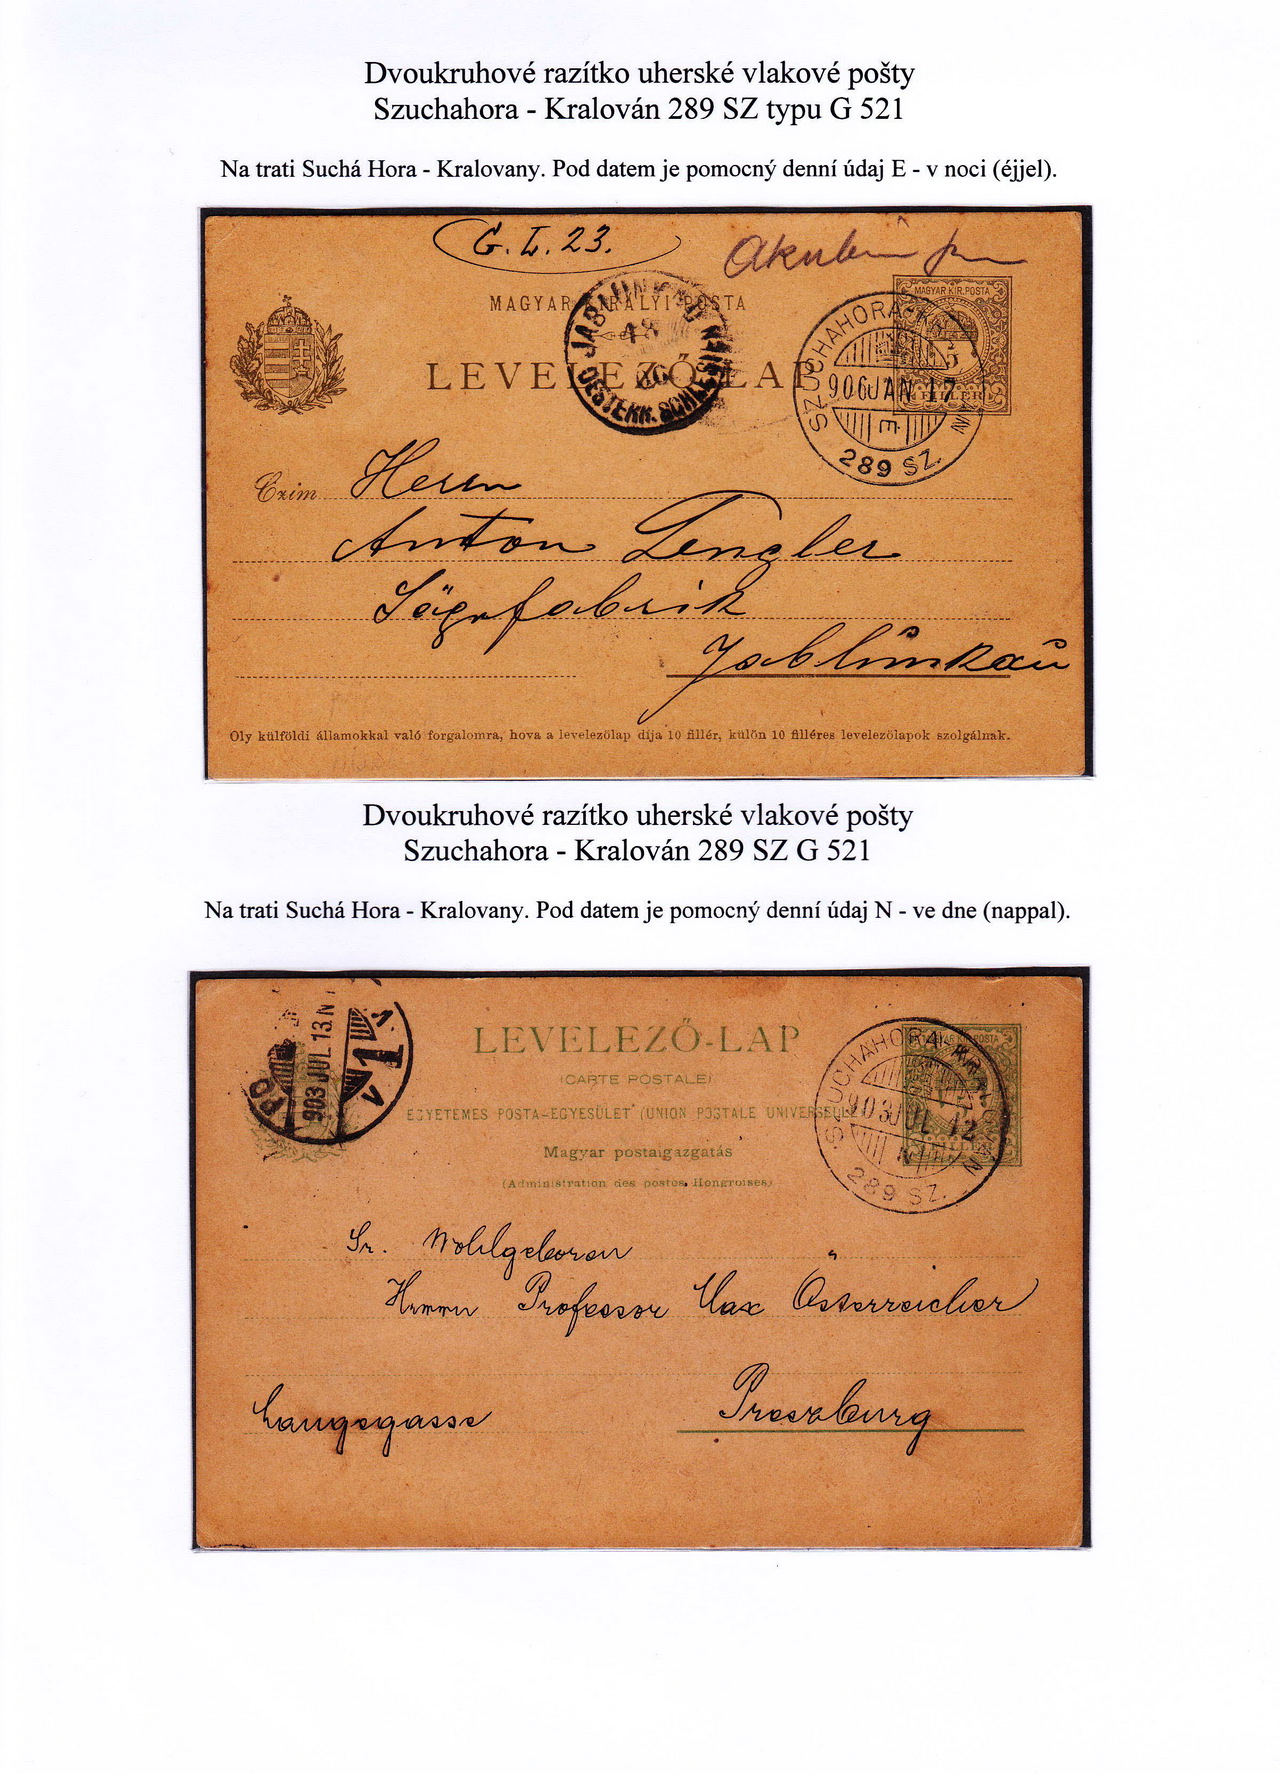 Dvoukruhové razítko uherské vlakové pošty
Szuchahora - Kralován 289 SZ typu G 521
Na trati Suchá Hora - Kralovany. Pod datem je pomocný denní údaj E - v noci (éjjel).
G. I. 23.
MAGYAR KIRÁLYI POSTA
LEVELEZŐ-LAP
JABLUNKAU
18
OESTERR. SCHLESIEN
MAGYAR KIR. POSTA
5
FILLÉR
SZUCHAHORA-KRALOVÁN
906 JAN 17
E
289 SZ.
Czim
Herrn
Anton Lengler
Sägefabrik
Jablunkau
Oly külföldi államokkal való forgalomra, hova a levelezőlap dija 10 fillér, külön 10 filléres levelezőlapok szolgálnak.
Dvoukruhové razítko uherské vlakové pošty
Szuchahora - Kralován 289 SZ G 521
Na trati Suchá Hora - Kralovany. Pod datem je pomocný denní údaj N - ve dne (nappal).
PO
903 JUL 13. N 1
V 1
LEVELEZŐ-LAP
(CARTE POSTALE)
EGYETEMES POSTA-EGYESÜLET (UNION POSTALE UNIVERSELLE)
Magyar postaigazgatás
(Administration des postes Hongroises)
MAGYAR KIR. POSTA
FILLÉR
SZUCHAHORA-KRALOVÁN
903 JUL 12
N
289 SZ.
Sr. Wohlgeboren
Herrn Professor Max Österreicher
Langegasse
Preszburg